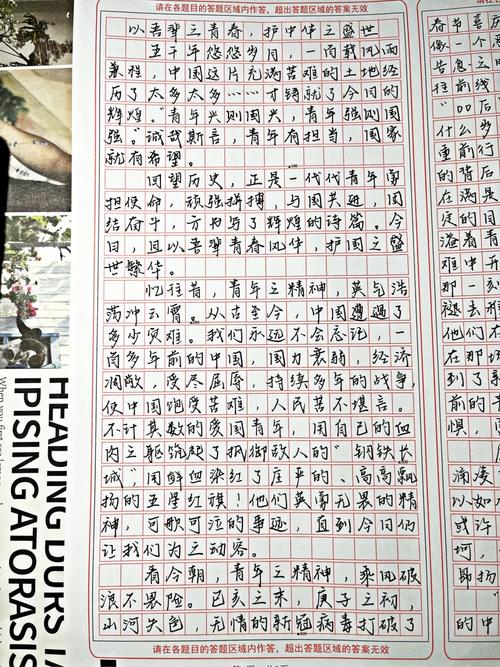 请在各题目的答题区域内作答,超出答题区域的答案无效
以吾辈之青春,护中华之盛世
五千年悠悠岁月,一肩载风雨
兼程,中国这片充满苦难的土地经
历了太多太多……才铸就了今日的
辉煌。"青年兴则国兴,青年强则国
强。"诚哉斯言,青年有担当,国家
就有希望。
回望历史,正是一代代青年肩
担使命,顽强拼搏,与国共进,团
结奋斗,方书写了辉煌的诗篇。今
日,且以吾辈青春风华,护国之盛
世繁华。
忆往昔,青年之精神,英气浩
荡冲云霄。从古至今,中国遭遇了
多少灾难。我们永远不会忘记,一
百多年前的中国,国力衰弱,经济
凋敝,受尽屈辱,持续多年的战争,
使中国饱受苦难,人民苦不堪言。
不计其数的爱国青年,用自己的血
肉之躯强起了抵御敌人的"钢铁长
城",用鲜血染红了庄严的、高高飘
扬的五星红旗!他们英勇无畏的精
神,可歌可泣的事迹,直到今日仍
让我们为之动容。
看今朝,青年之精神,乘风破
浪不畏险。己亥之末,庚子之初,
山河失色,无情的新冠病毒打破了
请在各题目的答题区域内作答,超出答题区域的答案无效
春节
像一个
告急
往前线
什么
重前行
的背后
在满是
定的目
溢着青
难中
那一
褪去
他们
在那
到了
前的
惧,
以如
或许
坷,
即扬
的中
HEADING DORS
IPISING ATORASIS